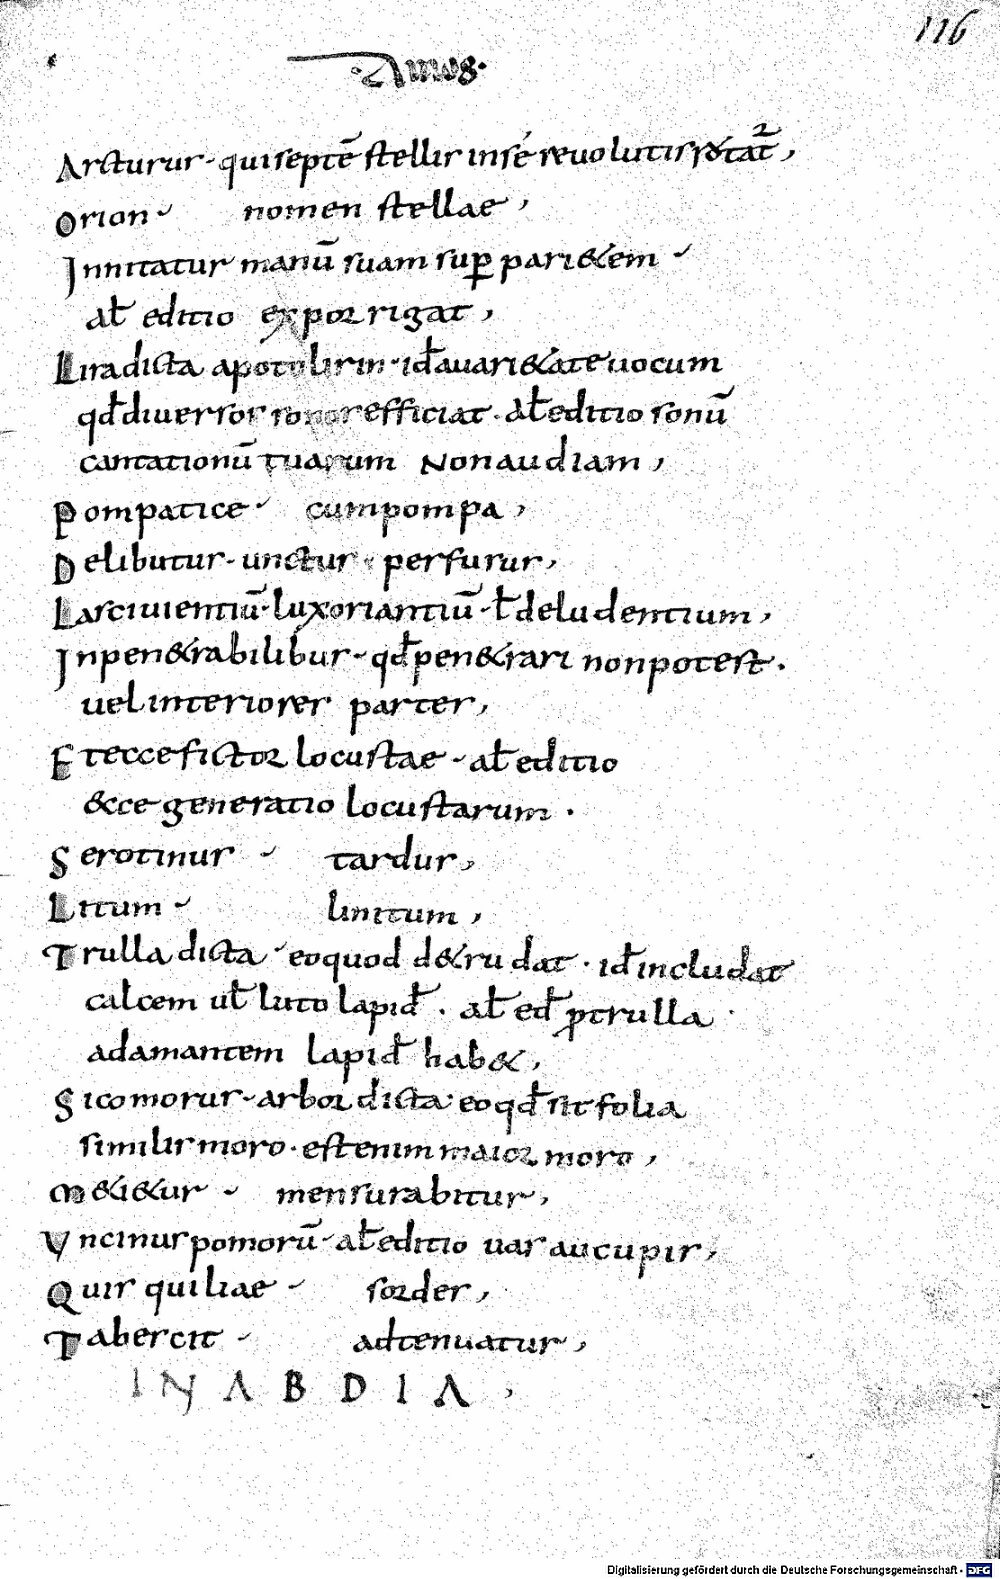 116
·Amos·
Arcturus· qui septē stellis in se reuolutis rotat̄,
Orion· nomen stellae,
Innitatur manū suam sup̱ parietem
al̄ editio exporrigat,
Lira dicta apo tu lirin· id̄ a uarietate uocum
qd̄ diuersos sonos efficiat· al̄ editio sonū
cantationū tuarum Non audiam,
Pompatice· cum pompa,
Delibutus· unctus· perfusus,
Lasciuientiū· luxoriantiū· ł deludentium,
Inpenetrabilibus· qd̄ penetrari non potest.
uel interiores partes,
Et ecce fictor locustae· al̄ editio
ecce generatio locustarum.
Serotinus· tardus,
Litum· linitum,
Trulla dicta· eo quod detrudat· id̄ includat
calcem ul̄ luto lapid̄· al̄ ed̄ p trulla
adamantem lapid̄ habet,
Sicomorus· arbor dicta· eo qd̄ sit folia
similis moro· est enim maior moro,
Metietur· mensurabitur,
Vncinus pomorū· al̄ editio uas aucupis,
Quisquiliae· sordes,
Tabescit· adtenuatur,
IN ABDIA,
Digitalisierung gefördert durch die Deutsche Forschungsgemeinschaft - DFG